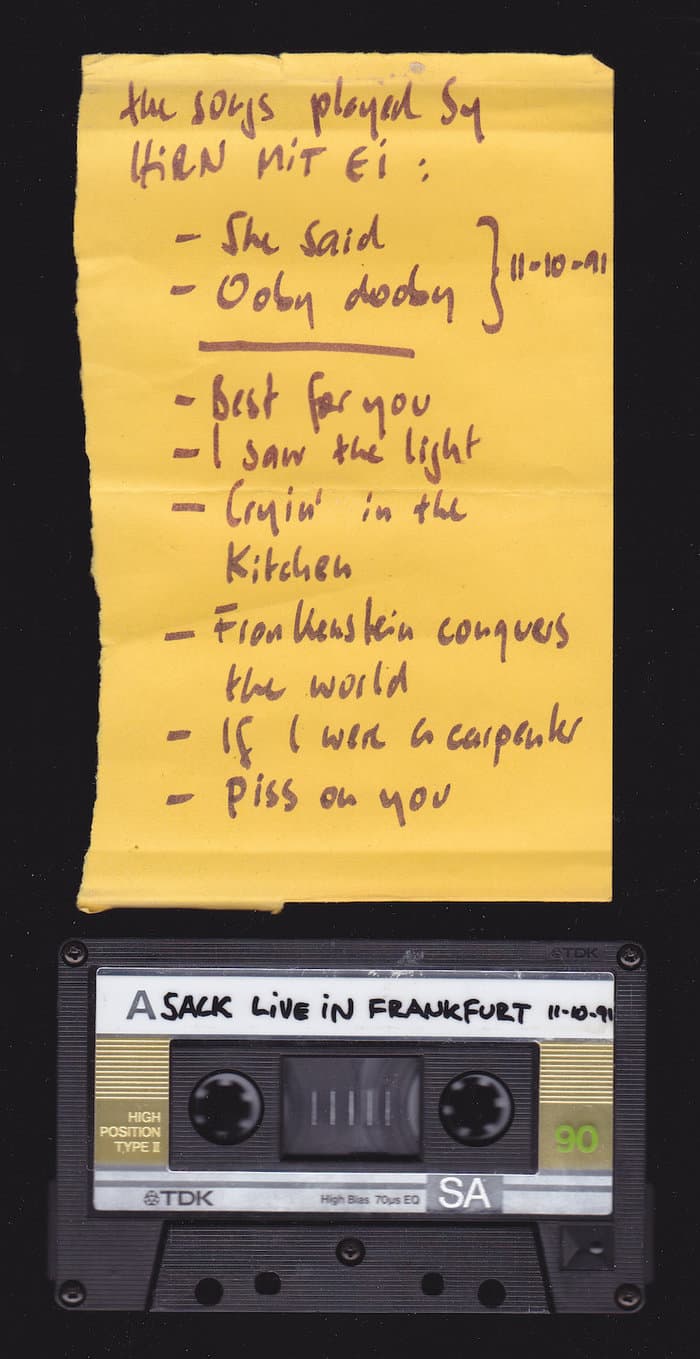 the songs played by
HIRN MIT EI :
- She said
- Ooby dooby } 11-10-91
- Best for you
- I saw the light
- Cryin' in the
Kitchen
- Frankenstein conquers
the world
- If I were a carpenter
- Piss on you
TDK
A SACK LIVE IN FRANKFURT 11-10-91
HIGH
POSITION
TYPE II
90
TDK High Bias 70µs EQ SA